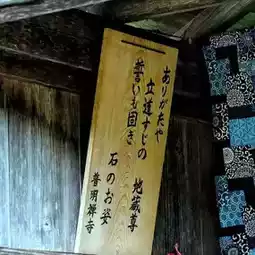 ありがたや
立道すじの
誓いも固き
地蔵尊
石のお姿
普明禅寺